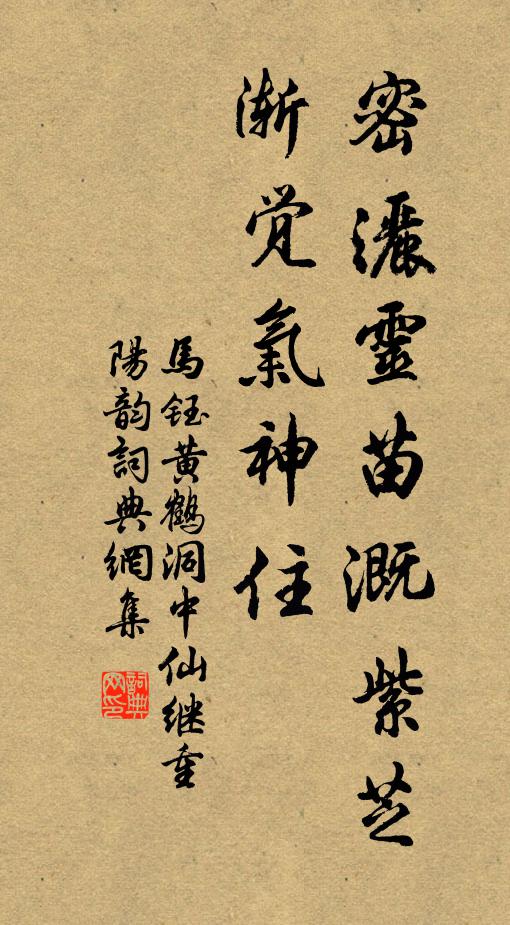 密灑靈苗溉紫芝
渐觉氣神住
馬鈺黄鶴洞中仙继重
陽韵詞典網集
詞典网印